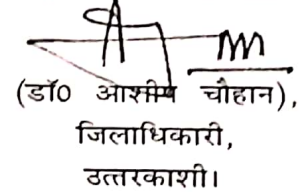 (डॉ0 आशीष चौहान),
जिलाधिकारी,
उत्तरकाशी।